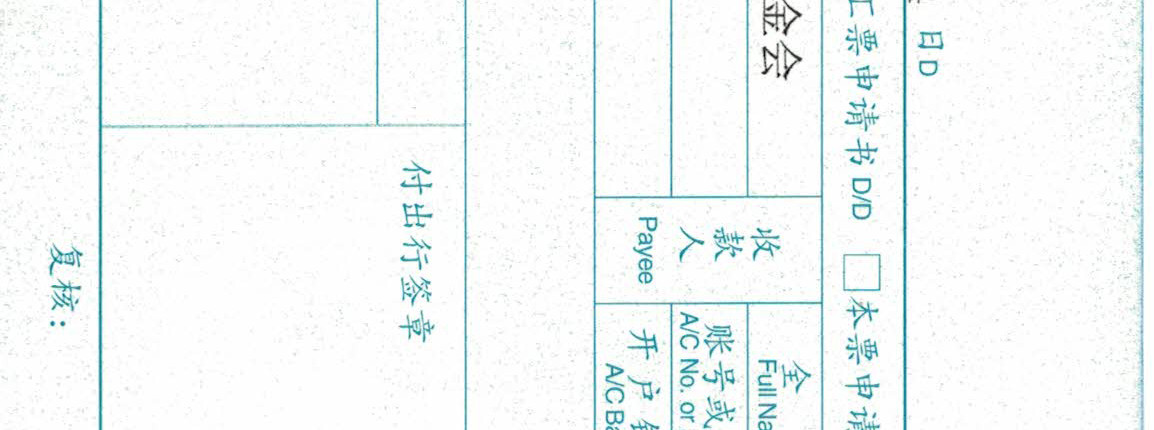 日D
汇票申请书 D/D □ 本票申请
金会
收款人
Payee
全
Full Na
账号或
A/C No. or
开户
A/C Ba
付出行签章
复核：